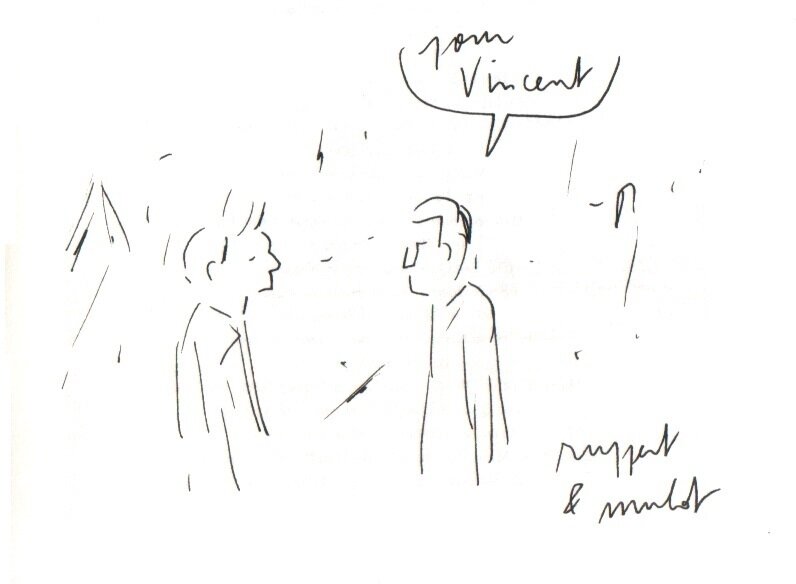 pour
Vincent
ruppert
& mulot